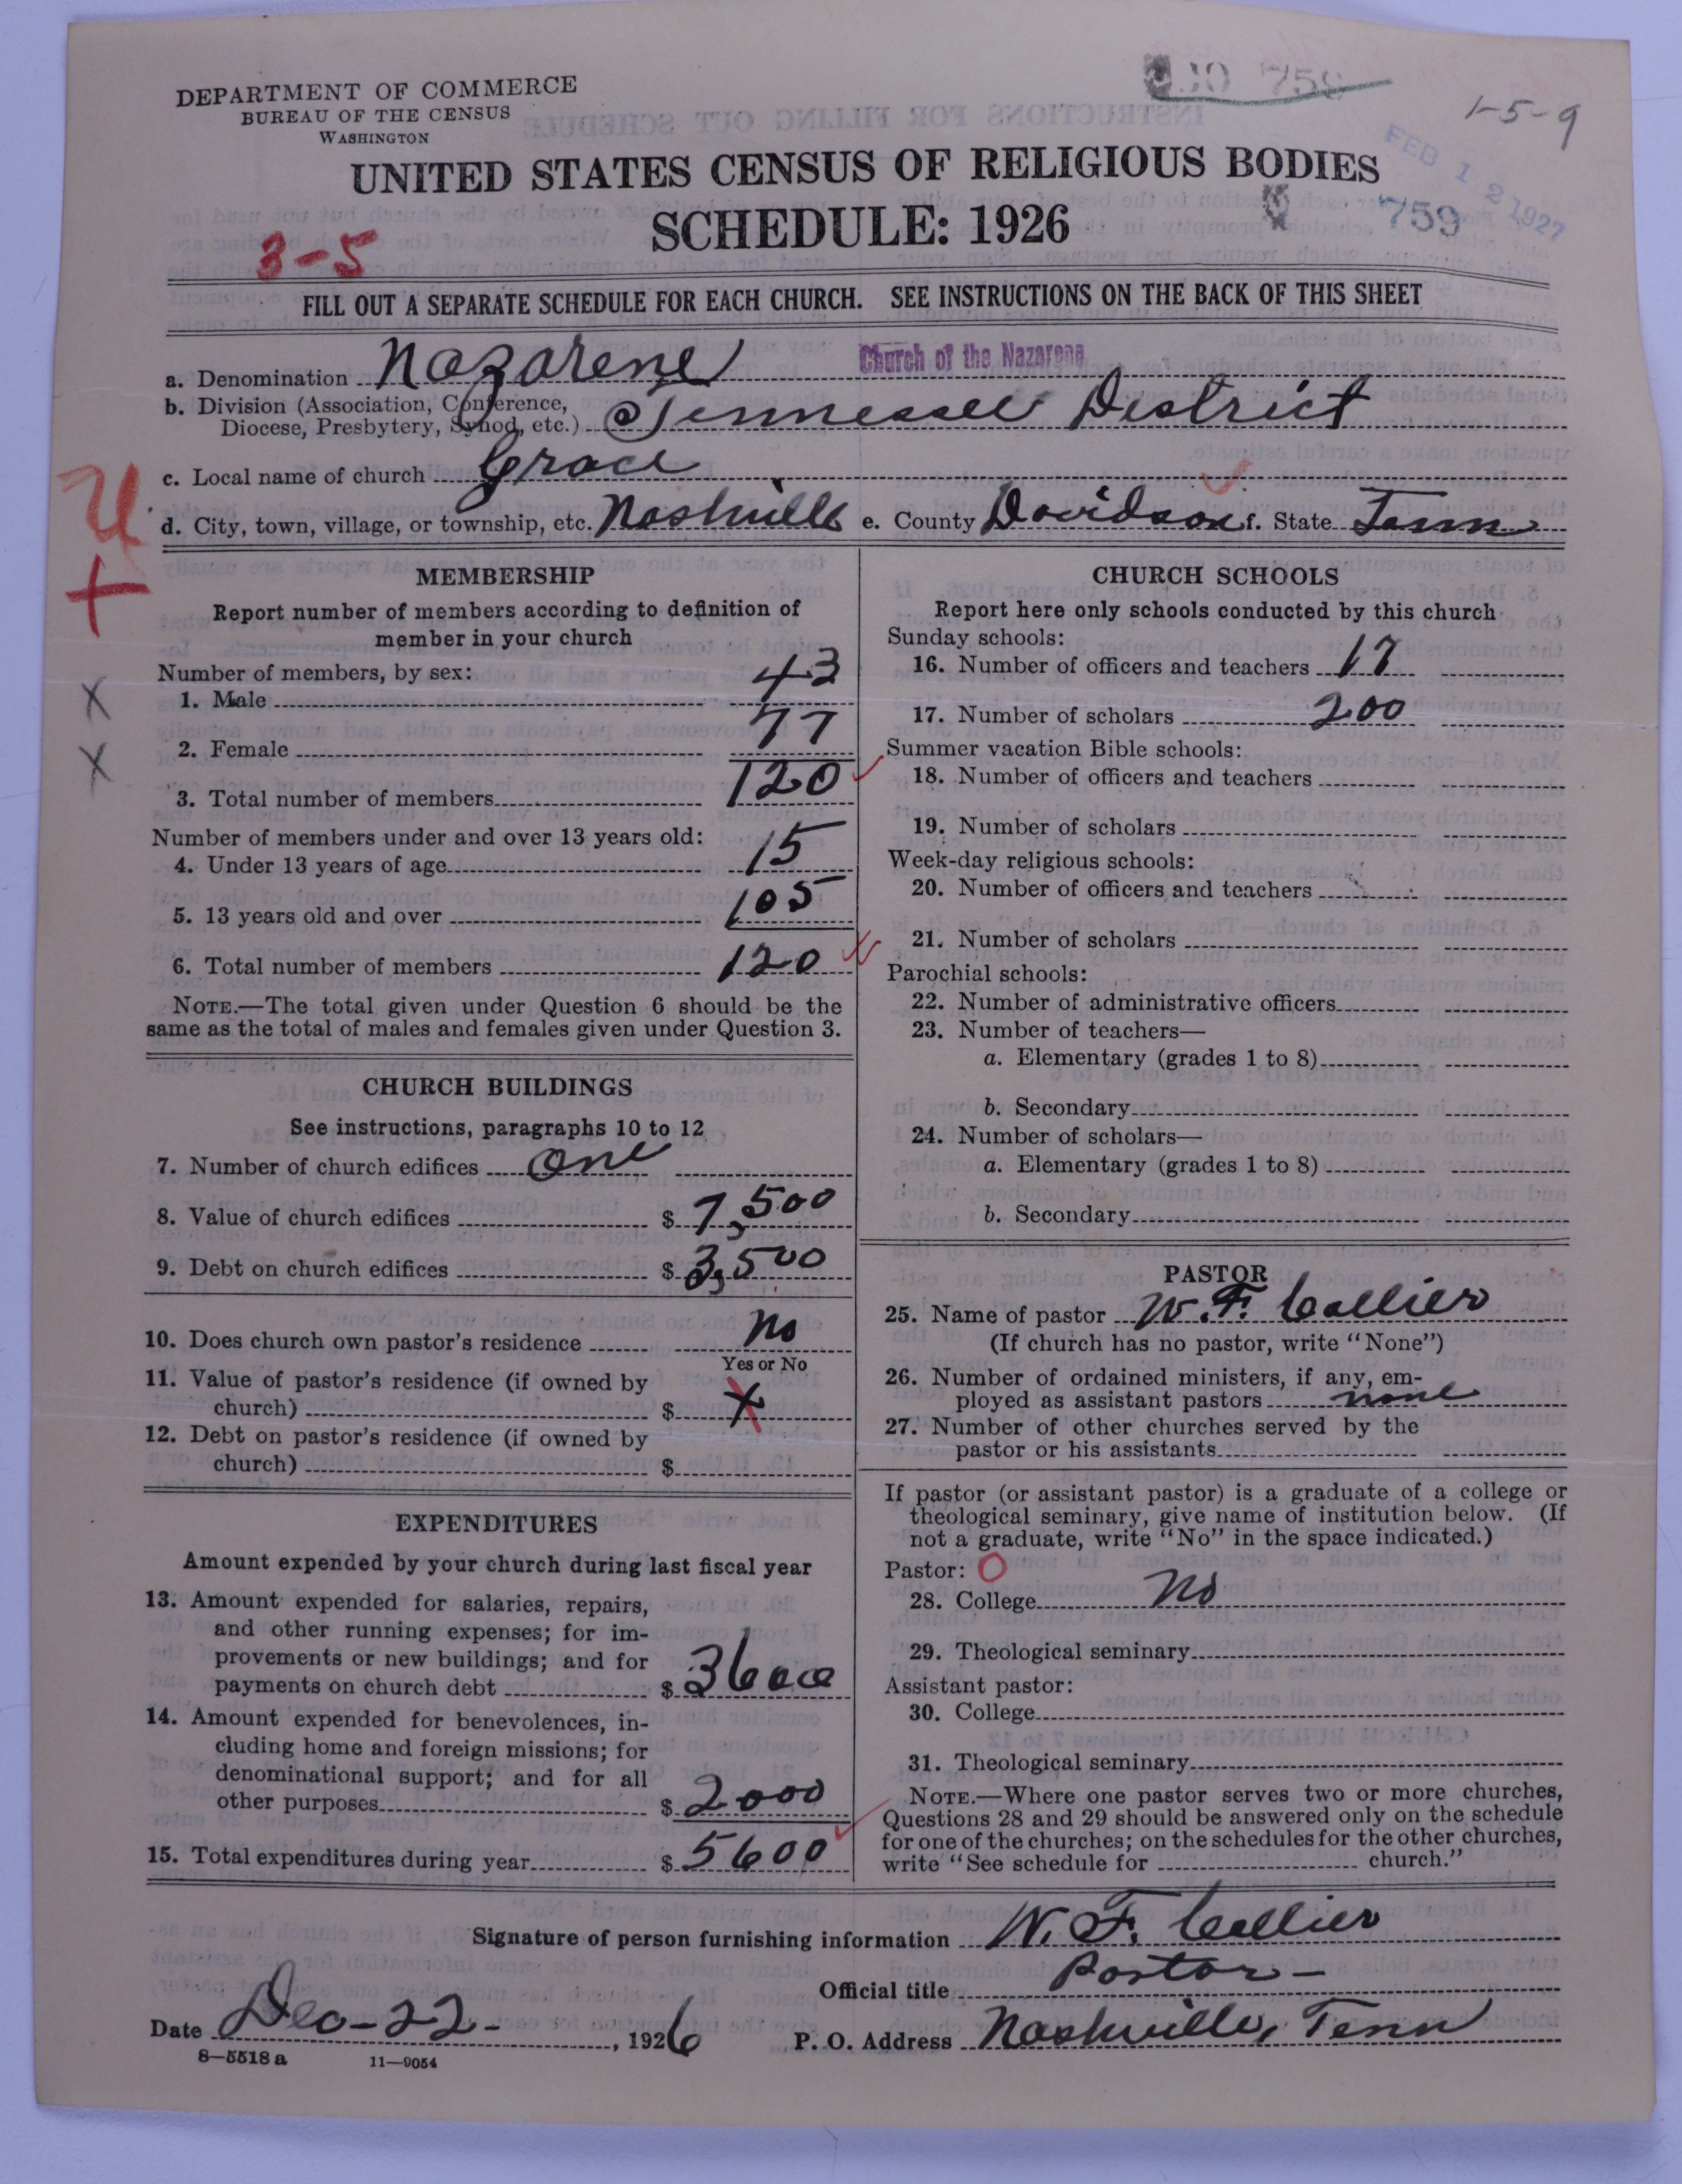 DEPARTMENT OF COMMERCE
BUREAU OF THE CENSUS
WASHINGTON
759
1-5-9
FEB 12 1927
UNITED STATES CENSUS OF RELIGIOUS BODIES
SCHEDULE: 1926
759
3-5
FILL OUT A SEPARATE SCHEDULE FOR EACH CHURCH. SEE INSTRUCTIONS ON THE BACK OF THIS SHEET
a. Denomination Nazarene Church of the Nazarene
b. Division (Association, Conference, Diocese, Presbytery, Synod, etc.) Tennessee District
c. Local name of church Grace
d. City, town, village, or township, etc. Nashville e. County Davidson f. State Tenn
MEMBERSHIP
Report number of members according to definition of
member in your church
Number of members, by sex:
1. Male 43
2. Female 77
3. Total number of members 120
Number of members under and over 13 years old:
4. Under 13 years of age 15
5. 13 years old and over 105
6. Total number of members 120
NOTE.—The total given under Question 6 should be the
same as the total of males and females given under Question 3.
CHURCH BUILDINGS
See instructions, paragraphs 10 to 12
7. Number of church edifices one
8. Value of church edifices $ 7,500
9. Debt on church edifices $ 3,500
10. Does church own pastor's residence no
Yes or No
11. Value of pastor's residence (if owned by
church) $ x
12. Debt on pastor's residence (if owned by
church) $
EXPENDITURES
Amount expended by your church during last fiscal year
13. Amount expended for salaries, repairs,
and other running expenses; for im-
provements or new buildings; and for
payments on church debt $ 3600
14. Amount expended for benevolences, in-
cluding home and foreign missions; for
denominational support; and for all
other purposes $ 2000
15. Total expenditures during year $ 5600
CHURCH SCHOOLS
Report here only schools conducted by this church
Sunday schools:
16. Number of officers and teachers 17
17. Number of scholars 200
Summer vacation Bible schools:
18. Number of officers and teachers
19. Number of scholars
Week-day religious schools:
20. Number of officers and teachers
21. Number of scholars
Parochial schools:
22. Number of administrative officers
23. Number of teachers—
a. Elementary (grades 1 to 8)
b. Secondary
24. Number of scholars—
a. Elementary (grades 1 to 8)
b. Secondary
PASTOR
25. Name of pastor W. F. Collier
(If church has no pastor, write "None")
26. Number of ordained ministers, if any, em-
ployed as assistant pastors none
27. Number of other churches served by the
pastor or his assistants
If pastor (or assistant pastor) is a graduate of a college or
theological seminary, give name of institution below. (If
not a graduate, write "No" in the space indicated.)
Pastor: O
28. College No
29. Theological seminary
Assistant pastor:
30. College
31. Theological seminary
NOTE.—Where one pastor serves two or more churches,
Questions 28 and 29 should be answered only on the schedule
for one of the churches; on the schedules for the other churches,
write "See schedule for church."
Signature of person furnishing information W. F. Collier
Official title Pastor
Date Dec-22-, 1926 P. O. Address Nashville, Tenn
8—5518 a 11—9054